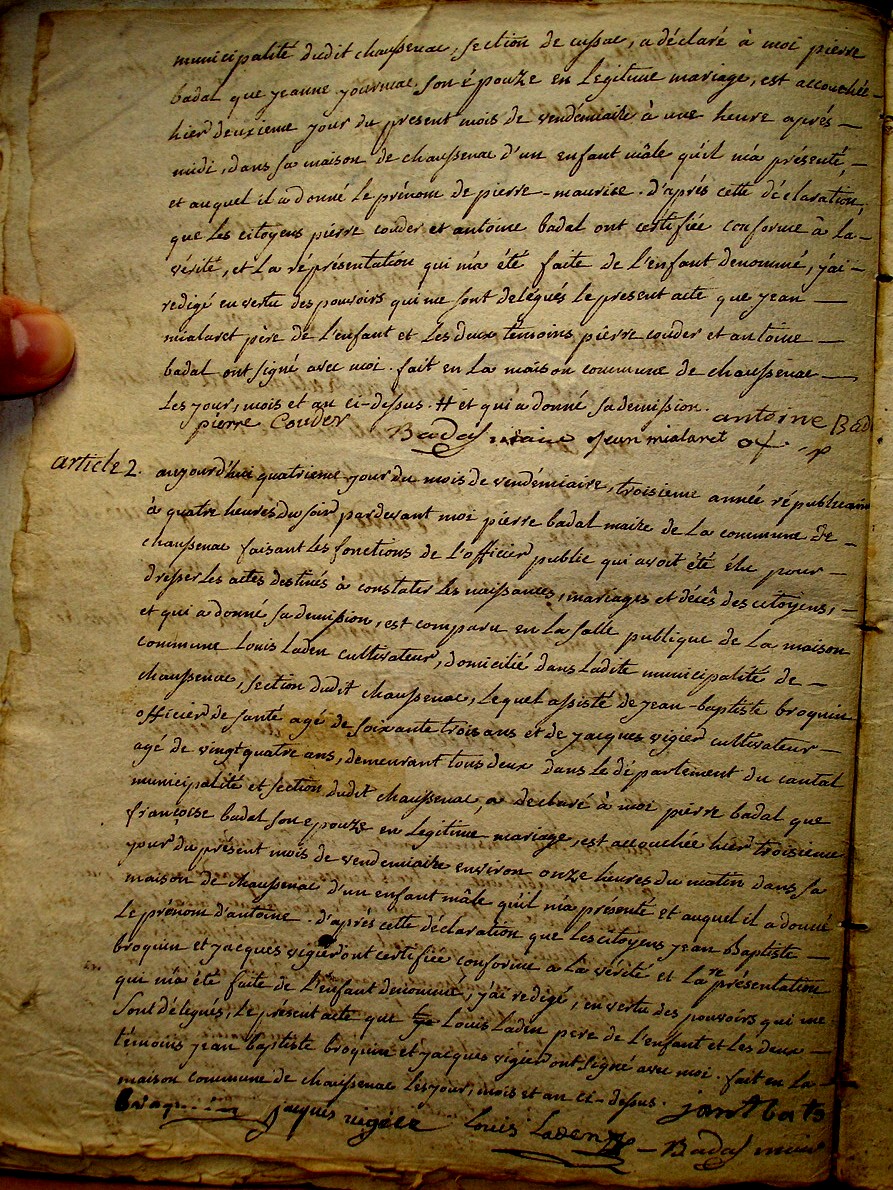 municipalité dudit chaussenac, section de cussac, a déclaré à moi pierre
badal que jeanne journiac son épouze en legitime mariage, est accouchée
hier deuxieme jour du present mois de vendémiaire à une heure après –
midi, dans sa maison de chaussenac d'un enfant mâle qu'il m'a présenté, –
et auquel il a donné le prénom de pierre – maurise. d'après cette déclaration,
que les citoyens pierre couder et antoine badal ont certifiée conforme à la –
vérité, et la réprésentation qui m'a été faite de l'enfant denommé, j'ai –
redigé en vertu des pouvoirs qui me sont delégués le present acte que jean —
mialaret père de l'enfant et les deux temoins pierre couder et antoine —
badal ont signé avec moi. fait en la maison commune de chaussenac —
les jour, mois et an ci-dessus. # et qui a donné sa demission. antoine Bad
pierre Couder Badal maire jean mialaret
article 2. aujourd'hui quatrieme jour du mois de vendémiaire, troisieme année républicaine
à quatre heures du soir pardevant moi pierre badal maire de la commune de –
chaussenac faisant les fonctions de l'officier public qui avoit été élu pour —
dresser les actes destinés à constater les naissances, mariages et décès des citoyens, –
et qui a donné sa demission, est comparu en la salle publique de la maison
commune Louis Laden cultivateur, domicilié dans ladite municipalité de –
chaussenac, section dudit chaussenac, lequel assisté de jean-baptiste broquin
officier de santé agé de soixante trois ans et de jacques vigier cultivateur —
agé de vingt quatre ans, demeurant tous deux dans le département du cantal
municipalité et section dudit chaussenac, a declaré à moi pierre badal que
françoise badal son epouze en legitime mariage, est accouchée hier troisieme
jour du présent mois de vendemiaire environ onze heures du matin dans sa
maison de chaussenac d'un enfant mâle qu'il m'a présenté et auquel il a donné
le prénom d'antoine. d'après cette déclaration que les citoyens jean Baptiste —
broquin et jacques vigier ont certifiée conforme a la vérité et la représentation
qui m'a été faite de l'enfant denommé, j'ai redigé, en vertu des pouvoirs qui me
sont délégués, le présent acte que Louis Laden pere de l'enfant et les deux —
témoins jean baptiste broquin et jacques vigier ont signé avec moi. fait en la
maison commune de chaussenac les jour, mois et an ci-dessus. jant bats
broquin jacques vigéie Louis Laden – Badal maire